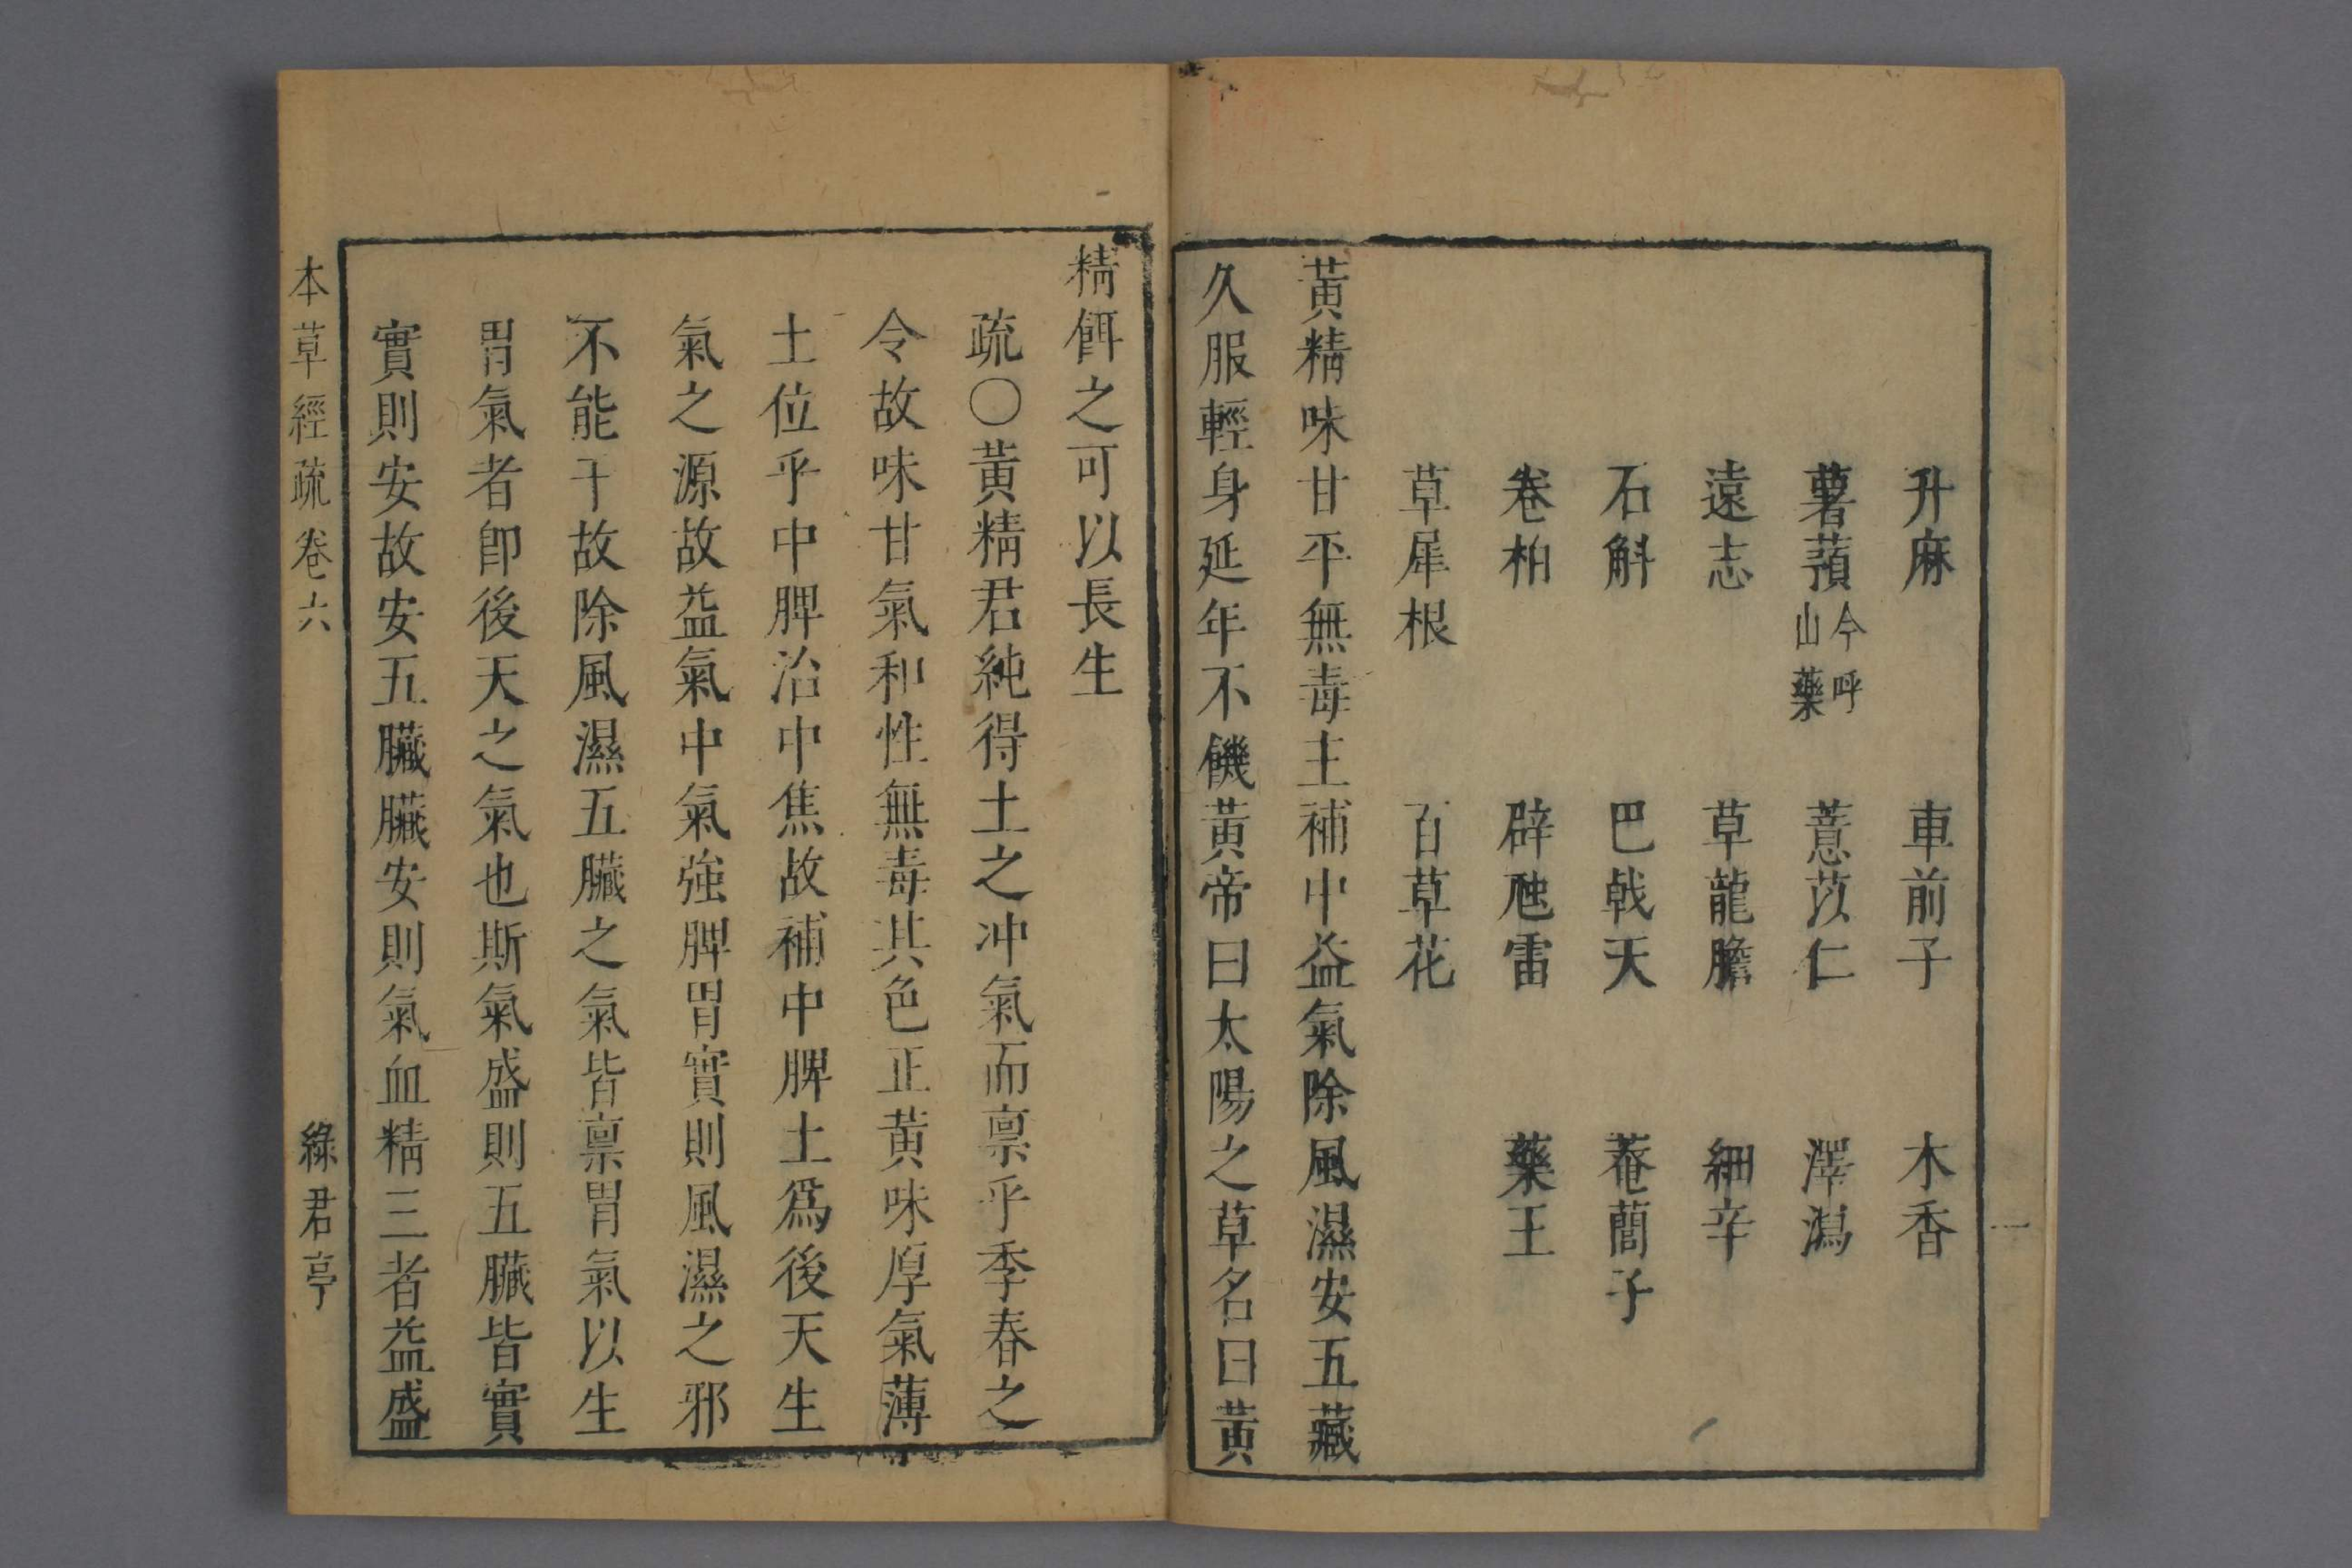 升麻　車前子　木香
薯蕷今呼山藥　薏苡仁　澤瀉
遠志　草龍膽　細辛
石斛　巴戟天　菴䕡子
卷柏　辟虺雷　藥王
草犀根　百草花
黃精味甘平無毒主補中益氣除風濕安五藏
久服輕身延年不饑黃帝曰太陽之草名曰黃
一
精餌之可以長生
疏○黃精君純得土之冲氣而禀乎季春之
令故味甘氣和性無毒其色正黃味厚氣薄
土位乎中脾治中焦故補中脾土爲後天生
氣之源故益氣中氣強脾胃實則風濕之邪
不能干故除風濕五臟之氣皆禀胃氣以生
胃氣者卽後天之氣也斯氣盛則五臟皆實
實則安故安五臟臟安則氣血精三者益盛
本草經疏卷六　綠君亭